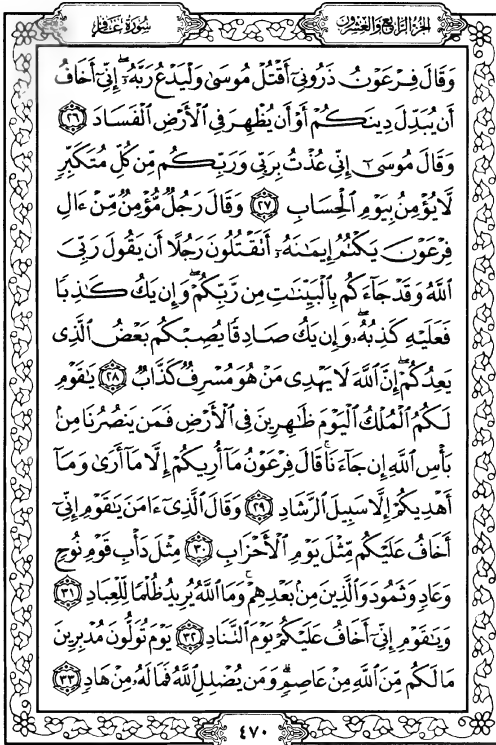 الجزء الرابع والعشرون
سورة غافر
وَقَالَ فِرْعَوْنُ ذَرُونِىٓ أَقْتُلْ مُوسَىٰ وَلْيَدْعُ رَبَّهُۥٓ إِنِّىٓ أَخَافُ
أَن يُبَدِّلَ دِينَكُمْ أَوْ أَن يُظْهِرَ فِى ٱلْأَرْضِ ٱلْفَسَادَ ٢٦
وَقَالَ مُوسَىٰٓ إِنِّى عُذْتُ بِرَبِّى وَرَبِّكُم مِّن كُلِّ مُتَكَبِّرٍ
لَّا يُؤْمِنُ بِيَوْمِ ٱلْحِسَابِ ٢٧ وَقَالَ رَجُلٌ مُّؤْمِنٌ مِّنْ ءَالِ
فِرْعَوْنَ يَكْتُمُ إِيمَـٰنَهُۥٓ أَتَقْتُلُونَ رَجُلًا أَن يَقُولَ رَبِّىَ
ٱللَّهُ وَقَدْ جَآءَكُم بِٱلْبَيِّنَـٰتِ مِن رَّبِّكُمْ ۖ وَإِن يَكُ كَـٰذِبًا
فَعَلَيْهِ كَذِبُهُۥ ۖ وَإِن يَكُ صَادِقًا يُصِبْكُم بَعْضُ ٱلَّذِى
يَعِدُكُمْ ۖ إِنَّ ٱللَّهَ لَا يَهْدِى مَنْ هُوَ مُسْرِفٌ كَذَّابٌ ٢٨ يَـٰقَوْمِ
لَكُمُ ٱلْمُلْكُ ٱلْيَوْمَ ظَـٰهِرِينَ فِى ٱلْأَرْضِ فَمَن يَنصُرُنَا مِنۢ
بَأْسِ ٱللَّهِ إِن جَآءَنَا ۚ قَالَ فِرْعَوْنُ مَآ أُرِيكُمْ إِلَّا مَآ أَرَىٰ وَمَآ
أَهْدِيكُمْ إِلَّا سَبِيلَ ٱلرَّشَادِ ٢٩ وَقَالَ ٱلَّذِىٓ ءَامَنَ يَـٰقَوْمِ إِنِّىٓ
أَخَافُ عَلَيْكُم مِّثْلَ يَوْمِ ٱلْأَحْزَابِ ٣٠ مِثْلَ دَأْبِ قَوْمِ نُوحٍ
وَعَادٍ وَثَمُودَ وَٱلَّذِينَ مِنۢ بَعْدِهِمْ ۚ وَمَا ٱللَّهُ يُرِيدُ ظُلْمًا لِّلْعِبَادِ ٣١
وَيَـٰقَوْمِ إِنِّىٓ أَخَافُ عَلَيْكُمْ يَوْمَ ٱلتَّنَادِ ٣٢ يَوْمَ تُوَلُّونَ مُدْبِرِينَ
مَا لَكُم مِّنَ ٱللَّهِ مِنْ عَاصِمٍ ۗ وَمَن يُضْلِلِ ٱللَّهُ فَمَا لَهُۥ مِنْ هَادٍ ٣٣
٤٧٠